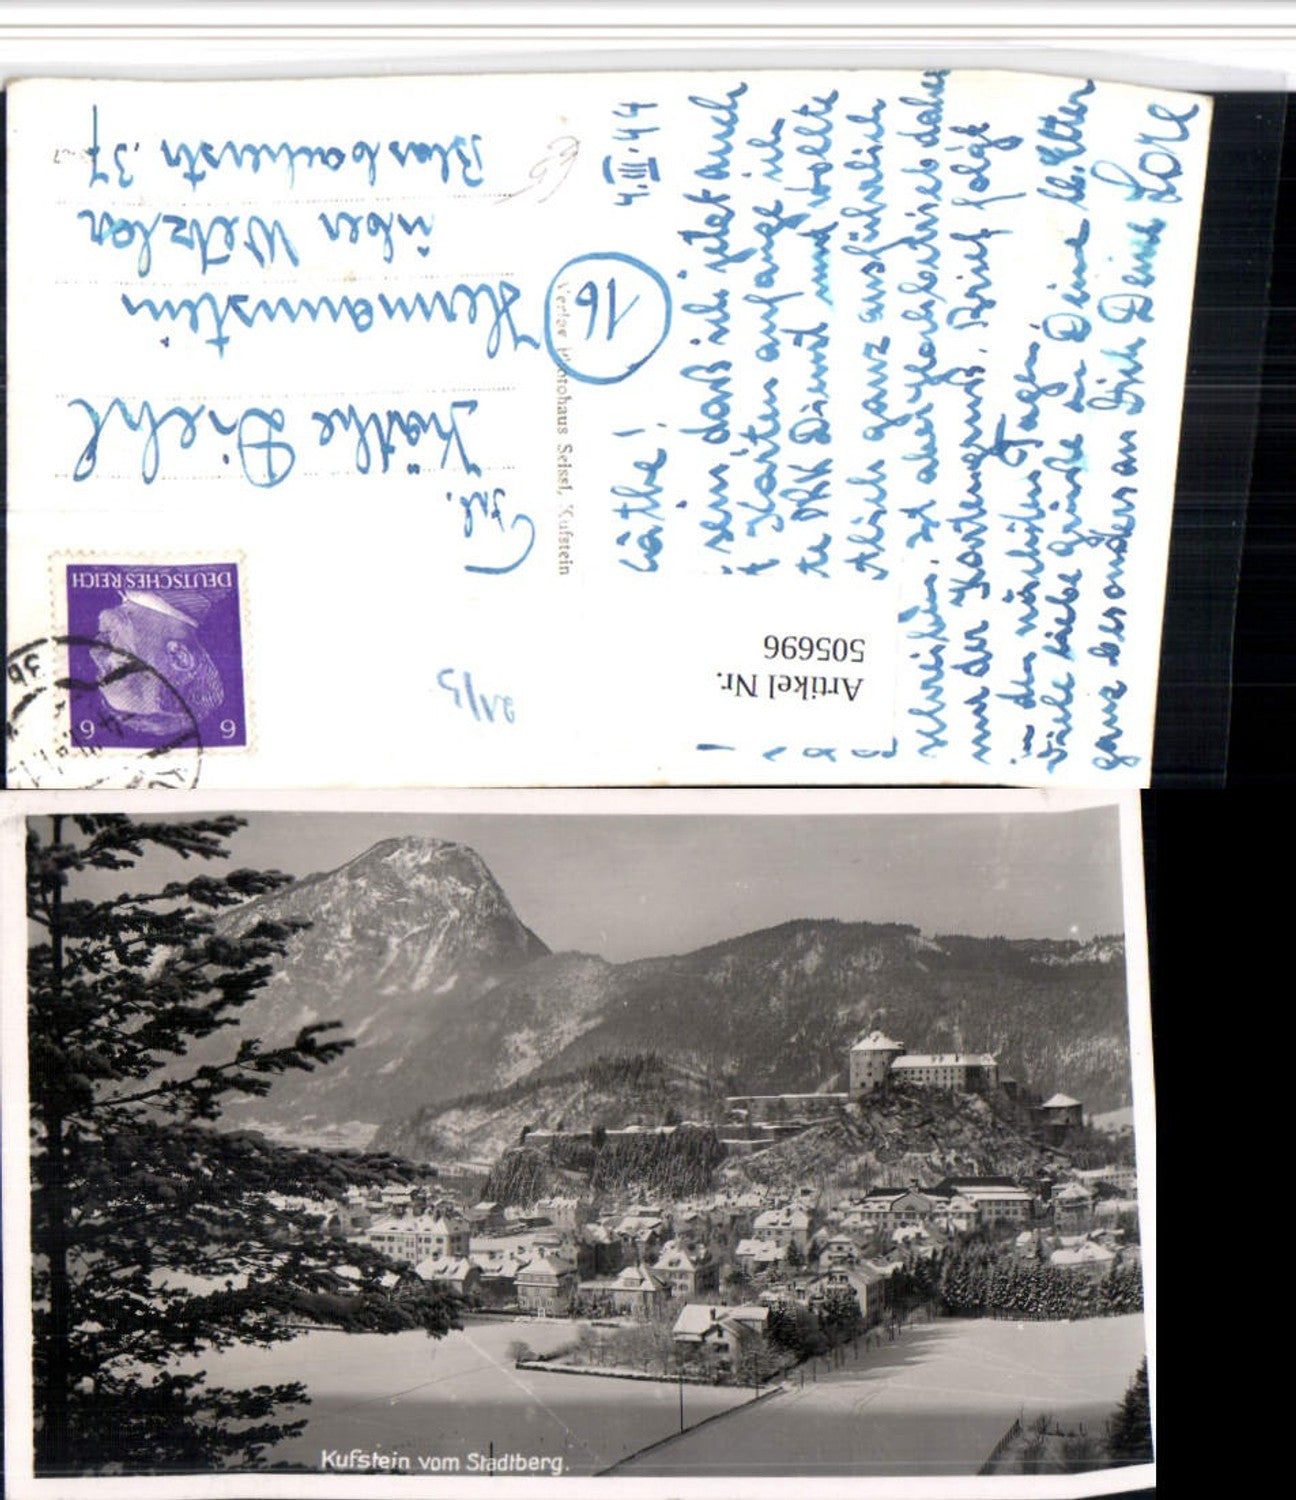 4.III.44
Käthe!
daß ich jetzt auch
Karten anfange ich
DRK Dienst und wollte
ganz ausführlich
schreiben, ist aber
und der Kartengruß. Brief folgt
in den nächsten Tagen.
Viele liebe Grüße an Deine lb. Eltern
ganz besonders an Dich Deine Lore
Verlag Photohaus Seissl, Kufstein
16
Frl.
Käthe Diehl
Hermannstein
über Wetzlar
Blasbacherstr. 37
DEUTSCHES REICH
6 6
3b
21/3
Artikel Nr.
505696
Kufstein vom Stadtberg.